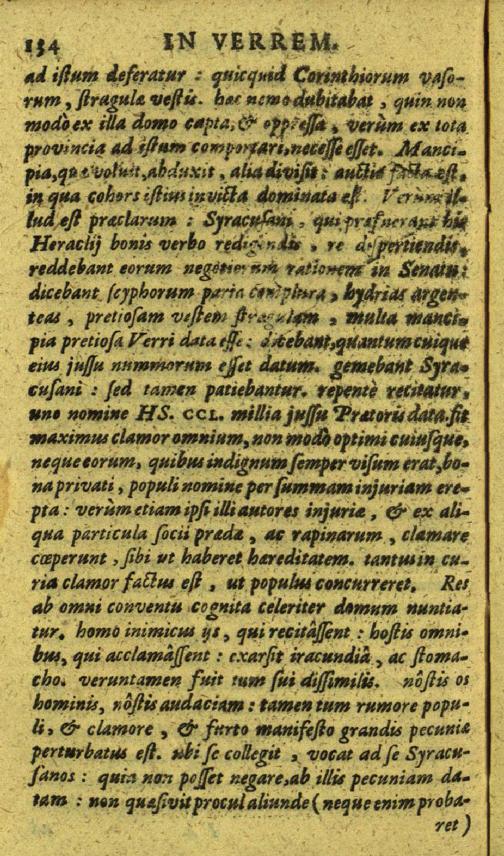 134 IN VERREM.
ad iſtum deferatur : quicquid Corinthiorum vaſo-
rum, ſtragulæ veſtis. hæc nemo dubitabat, quin non
modò ex illa domo capta, & oppreſſa, verùm ex tota
provincia ad iſtum comportari, neceſſe eſſet. Manci-
pia, quæ voluit, abduxit, alia diviſit : auctio facta eſt,
in qua cohors iſtius invicta dominata eſt. Verum il-
lud eſt præclarum : Syracuſani, qui præfuerant his
Heraclij bonis verbo redigendis, re diſpertiendis,
reddebant eorum negotiorum rationem in Senatu:
dicebant ſcyphorum paria complura, hydrias argen-
teas, pretioſam veſtem ſtragulam, multa manci-
pia pretioſa Verri data eſſe : dicebant, quantum cuique
eius juſſu nummorum eſſet datum. gemebant Syra-
cuſani : ſed tamen patiebantur. repentè recitatur,
uno nomine HS. CCL. millia juſſu Prætoris data. fit
maximus clamor omnium, non modò optimi cuiuſque,
neque eorum, quibus indignum ſemper viſum erat, bo-
na privati, populi nomine per ſummam injuriam ere-
pta : verùm etiam ipſi illi autores injuriæ, & ex ali-
qua particula ſocii prædæ, ac rapinarum, clamare
cœperunt, ſibi ut haberet hæreditatem. tantus in cu-
ria clamor factus eſt, ut populus concurreret. Res
ab omni conventu cognita celeriter domum nuntia-
tur. homo inimicus ijs, qui recitâſſent : hoſtis omni-
bus, qui acclamâſſent : exarſit iracundiâ, ac ſtoma-
cho. veruntamen fuit tum ſui diſſimilis. nôſtis os
hominis, nôſtis audaciam : tamen tum rumore popu-
li, & clamore, & furto manifeſto grandis pecuniæ
perturbatus eſt. ubi ſe collegit, vocat ad ſe Syracu-
ſanos : quia non poſſet negare, ab illis pecuniam da-
tam : non quæſivit procul aliunde (neque enim proba-
ret)